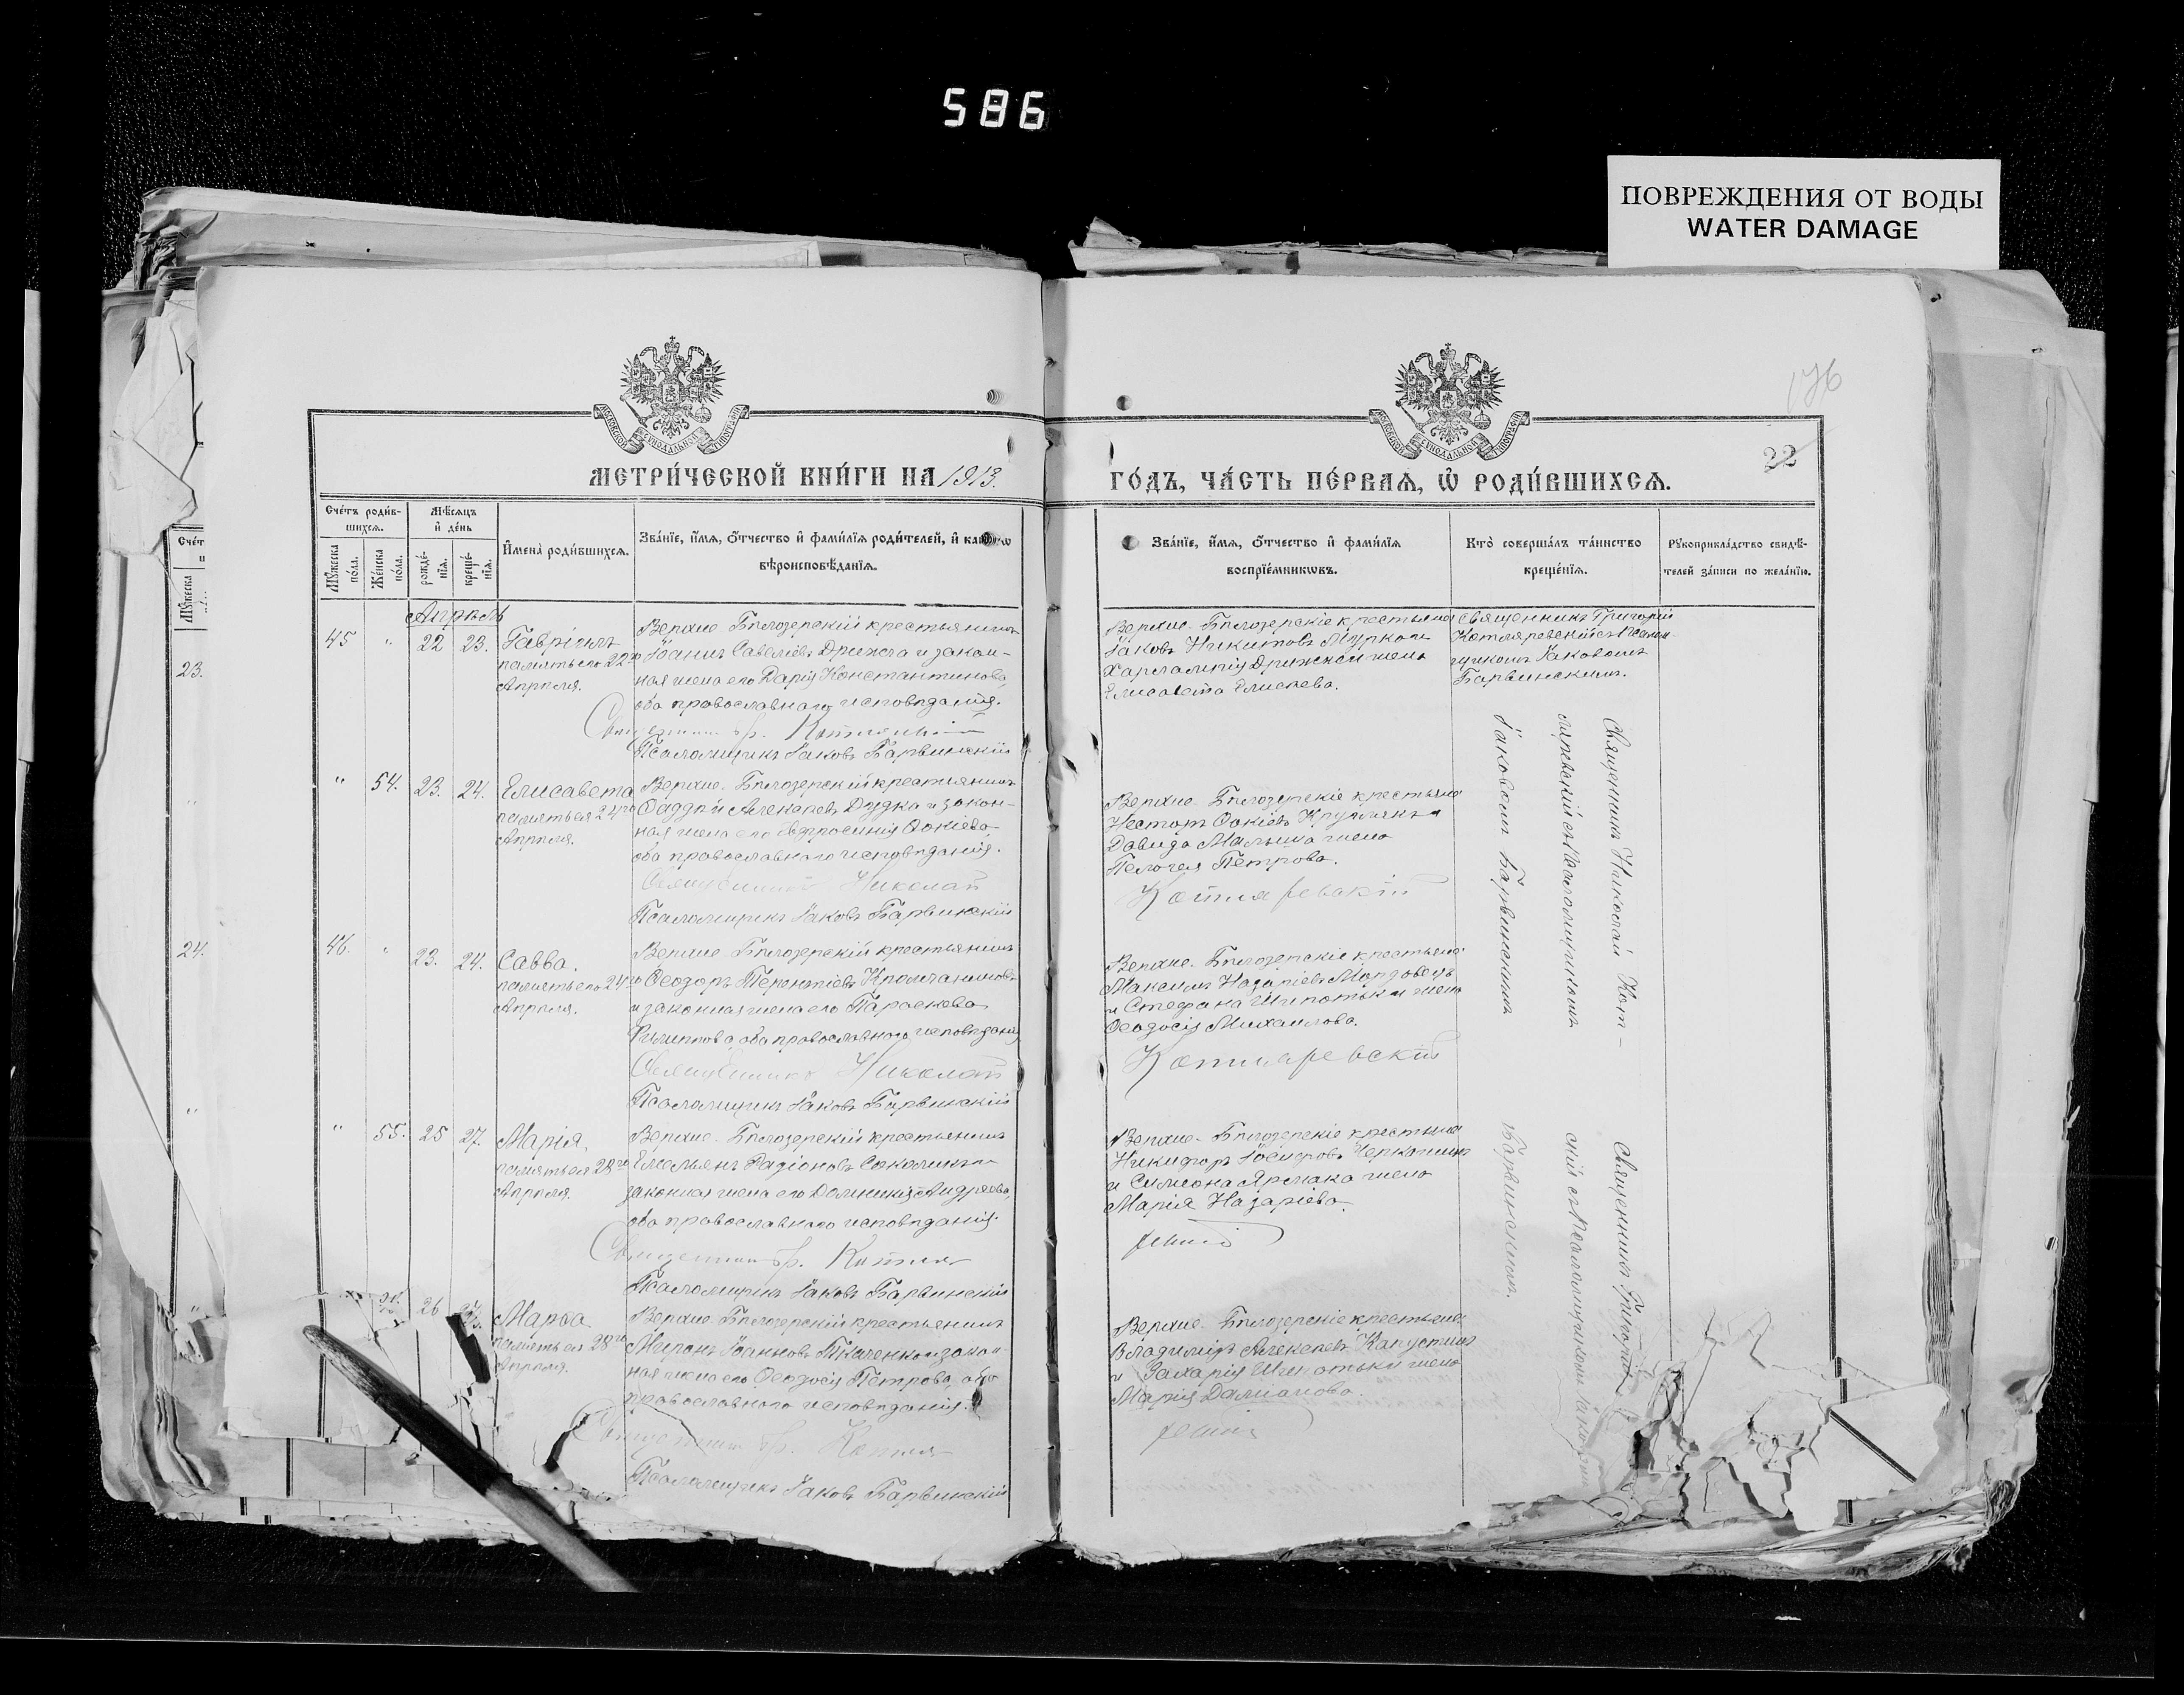 586
ПОВРЕЖДЕНИЯ ОТ ВОДЫ
WATER DAMAGE
176
22
МОСКОВСКОЙ СѴНОДАЛЬНОЙ ТИПОГРАФІИ
МОСКОВСКОЙ СѴНОДАЛЬНОЙ ТИПОГРАФІИ
МЕТРИ́ЧЕСКОЙ КНИ́ГИ НА 1913.
ГО́ДЪ, ЧА́СТЬ ПЕ́РВАЯ, Ѡ҆ РОДИ́ВШИХСЯ.
Сче́тъ роди́в-
шихся.
Мꙋжеска
по́ла.
Же́нска
по́ла.
Мѣ́сяцъ
и҆ де́нь
рожде́-
нїя.
креще́-
нїя.
И҆мена̀ роди́вшихся.
Зва́нїе, и҆́мя, ѻ҆́тчество и҆ фами́лїя роди́телей, и҆
вѣроисповѣ́данїя.
Зва́нїе, и҆́мя, ѻ҆́тчество и҆ фами́лїя
воспрїе́мникѡвъ.
Кто̀ соверша́лъ та́инство
креще́нїя.
Рꙋкоприкла́дство свидѣ́-
телей за́писи по жела́нїю.
Апрѣль
45 " 22 23. Гавріилъ
память его 22го
Апрѣля.
Верхне-Бѣлозерскій крестьянинъ
Іоаннъ Савеліевъ Дрижга и закон-
ная жена его Дарія Константинова,
оба православнаго исповѣданія.
Псаломщикъ Іаковъ Барвинскій
Верхне-Бѣлозерскіе крестьяне
Іаковъ Никитовъ Мурко и
Харлампія Дрижжи жена
Елисавета Елисеева.
Священникъ Григорій
Котляревскій съ Псалом-
щикомъ Іаковомъ
Барвинскимъ.
" 54. 23. 24. Елисавета
память ея 24го
Апрѣля.
Верхне-Бѣлозерскій крестьянинъ
Ѳаддей Алексѣевъ Дудка и закон-
ная жена его Евфросинія Ѳокіева
оба православнаго исповѣданія.
Священникъ Николай
Псаломщикъ Іаковъ Барвинскій
Верхне-Бѣлозерскіе крестьяне
Несторъ Ѳокіевъ Круплякъ и
Давида Малыша жена
Пелагея Петрова.
Котляревскій
Священникъ Николай Кот-
ляревскій съ Псаломщикомъ
Іаковомъ Барвинскимъ
23.
24.
46. " 23. 24. Савва.
память его 24го
Апрѣля.
Верхне-Бѣлозерскій крестьянинъ
Ѳеодоръ Терентіевъ
и законная жена его Параскева
Филиппова, оба православнаго исповѣданія
Священникъ Николай
Псаломщикъ Іаковъ Барвинскій
Верхне-Бѣлозерскіе крестьяне
Максимъ Назаріевъ Мордовецъ
и Стефана Шипотьки жена
Ѳеодосія Михаилова.
Котляревскій
" 55. 25 27. Марія.
память ея 28го
Апрѣля.
Верхне-Бѣлозерскій крестьянинъ
Емельянъ Радіоновъ Соколикъ и
законная жена его Домникія Андреева,
оба православнаго исповѣданія.
Псаломщикъ Іаковъ Барвинскій
Верхне-Бѣлозерскіе крестьяне
Никифоръ Іосифовъ
и Симеона Ярмака жена
Марія Назаріева.
Священникъ Григорій
съ Псаломщикомъ Іаковомъ
Барвинскимъ.
26 27. Марѳа
память ея 28го
Апрѣля.
Верхне-Бѣлозерскій крестьянинъ
Миронъ Іоанновъ Ткаченко и закон-
ная жена его Ѳеодосія Петрова, оба
православнаго исповѣданія.
Псаломщикъ Іаковъ Барвинскій
Верхне-Бѣлозерскіе крестьяне
Владиміръ Алексѣевъ Капустинъ
и Захарія Шипотьки жена
Марія Даміанова.